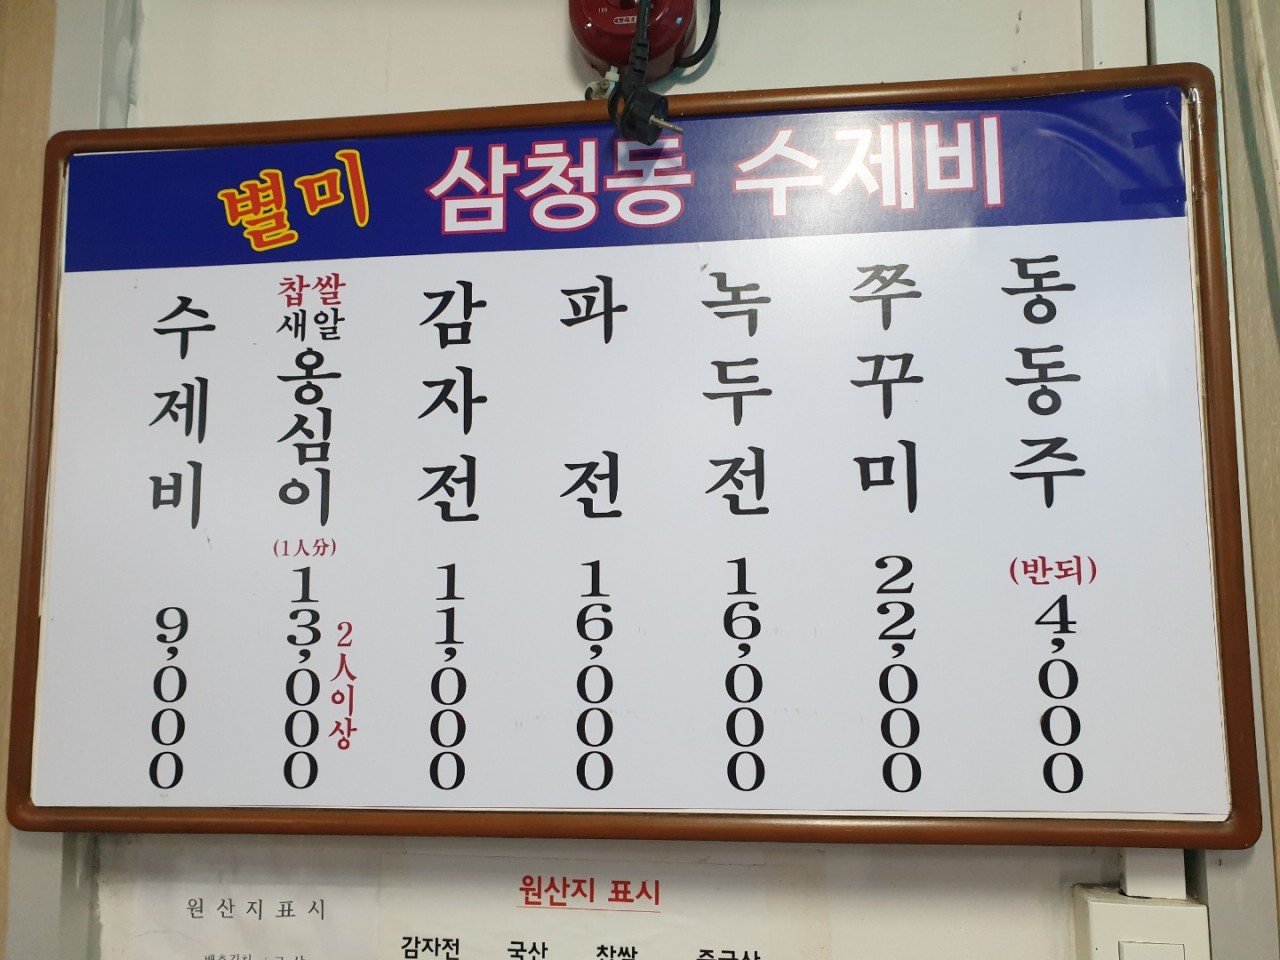 별미 삼청동 수제비
수제비
9,000
찹쌀
새알
옹심이
(1人分)
13,000
2人이상
감자전
11,000
파전
16,000
녹두전
16,000
쭈꾸미
22,000
동동주
(반되)
4,000
원산지표시
원산지 표시
감자전 국산 찹쌀 중국산